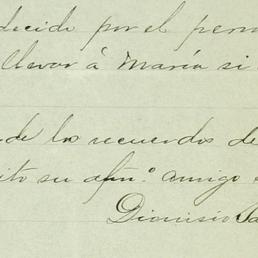 decide por el
llevar á María si
de los recuerdos de
su afmo. amigo
Dionisio